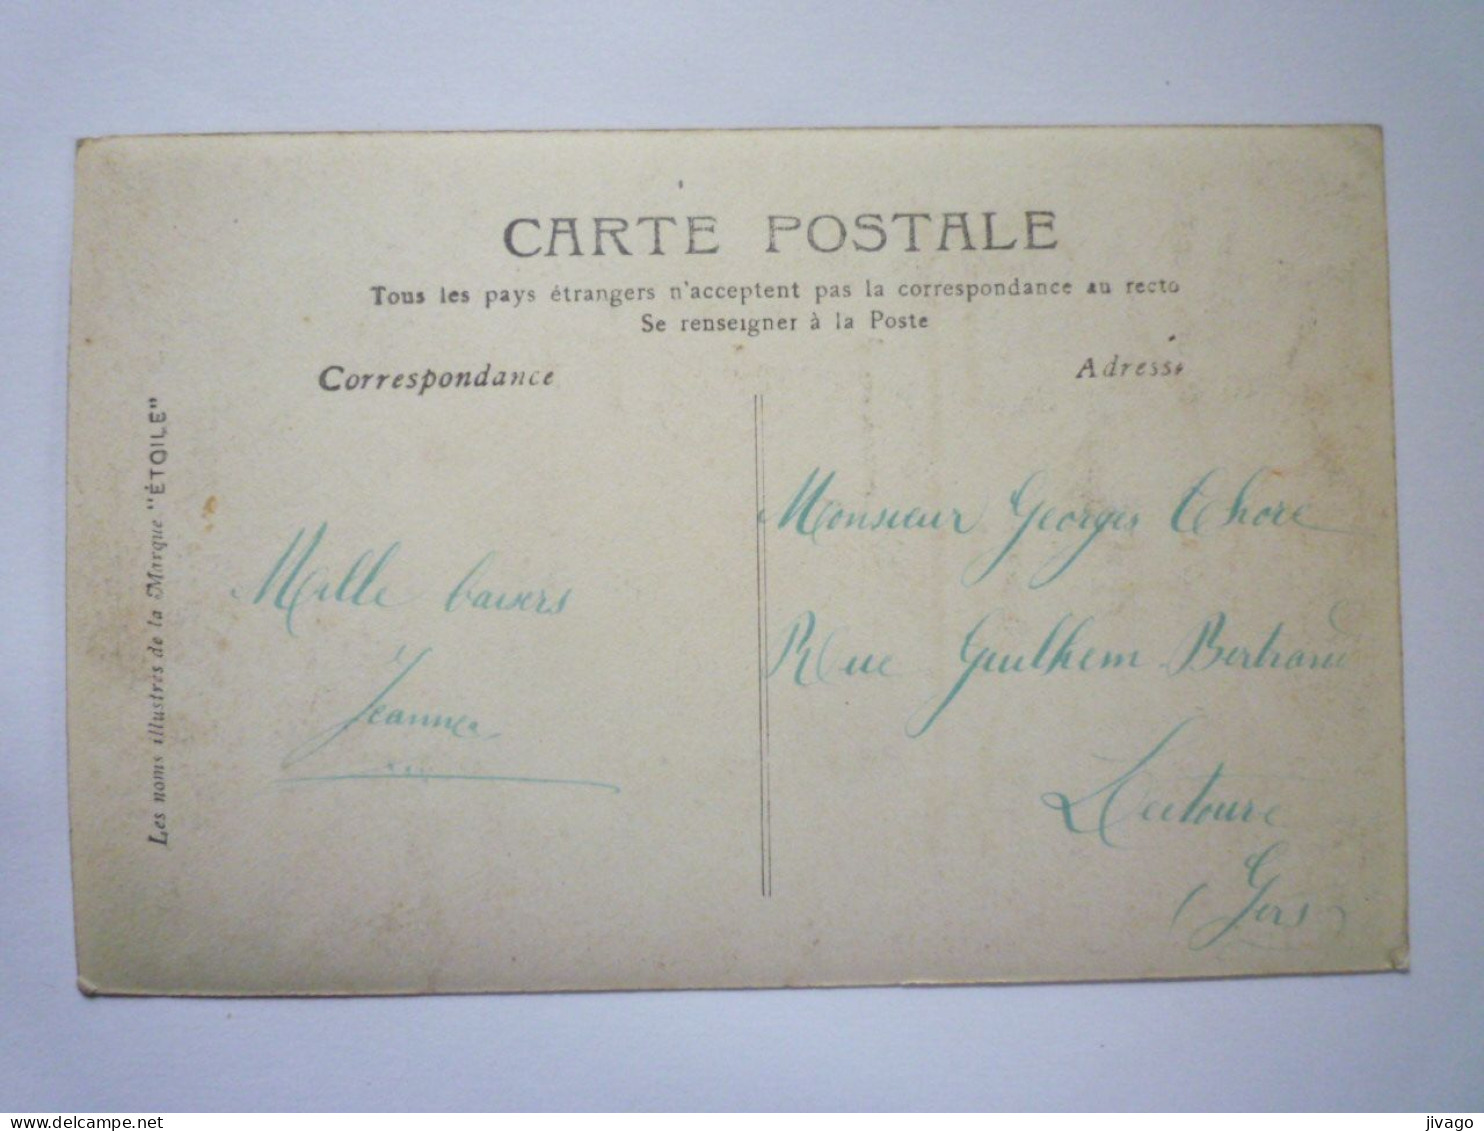 CARTE POSTALE
Tous les pays étrangers n'acceptent pas la correspondance au recto
Se renseigner à la Poste
Correspondance
Adresse
Les noms illustres de la Marque "ÉTOILE"
Mille baisers
Jeanne
Monsieur Georges Thore
Rue Guilhem Bertrand
Lectoure
(Gers)
jivago